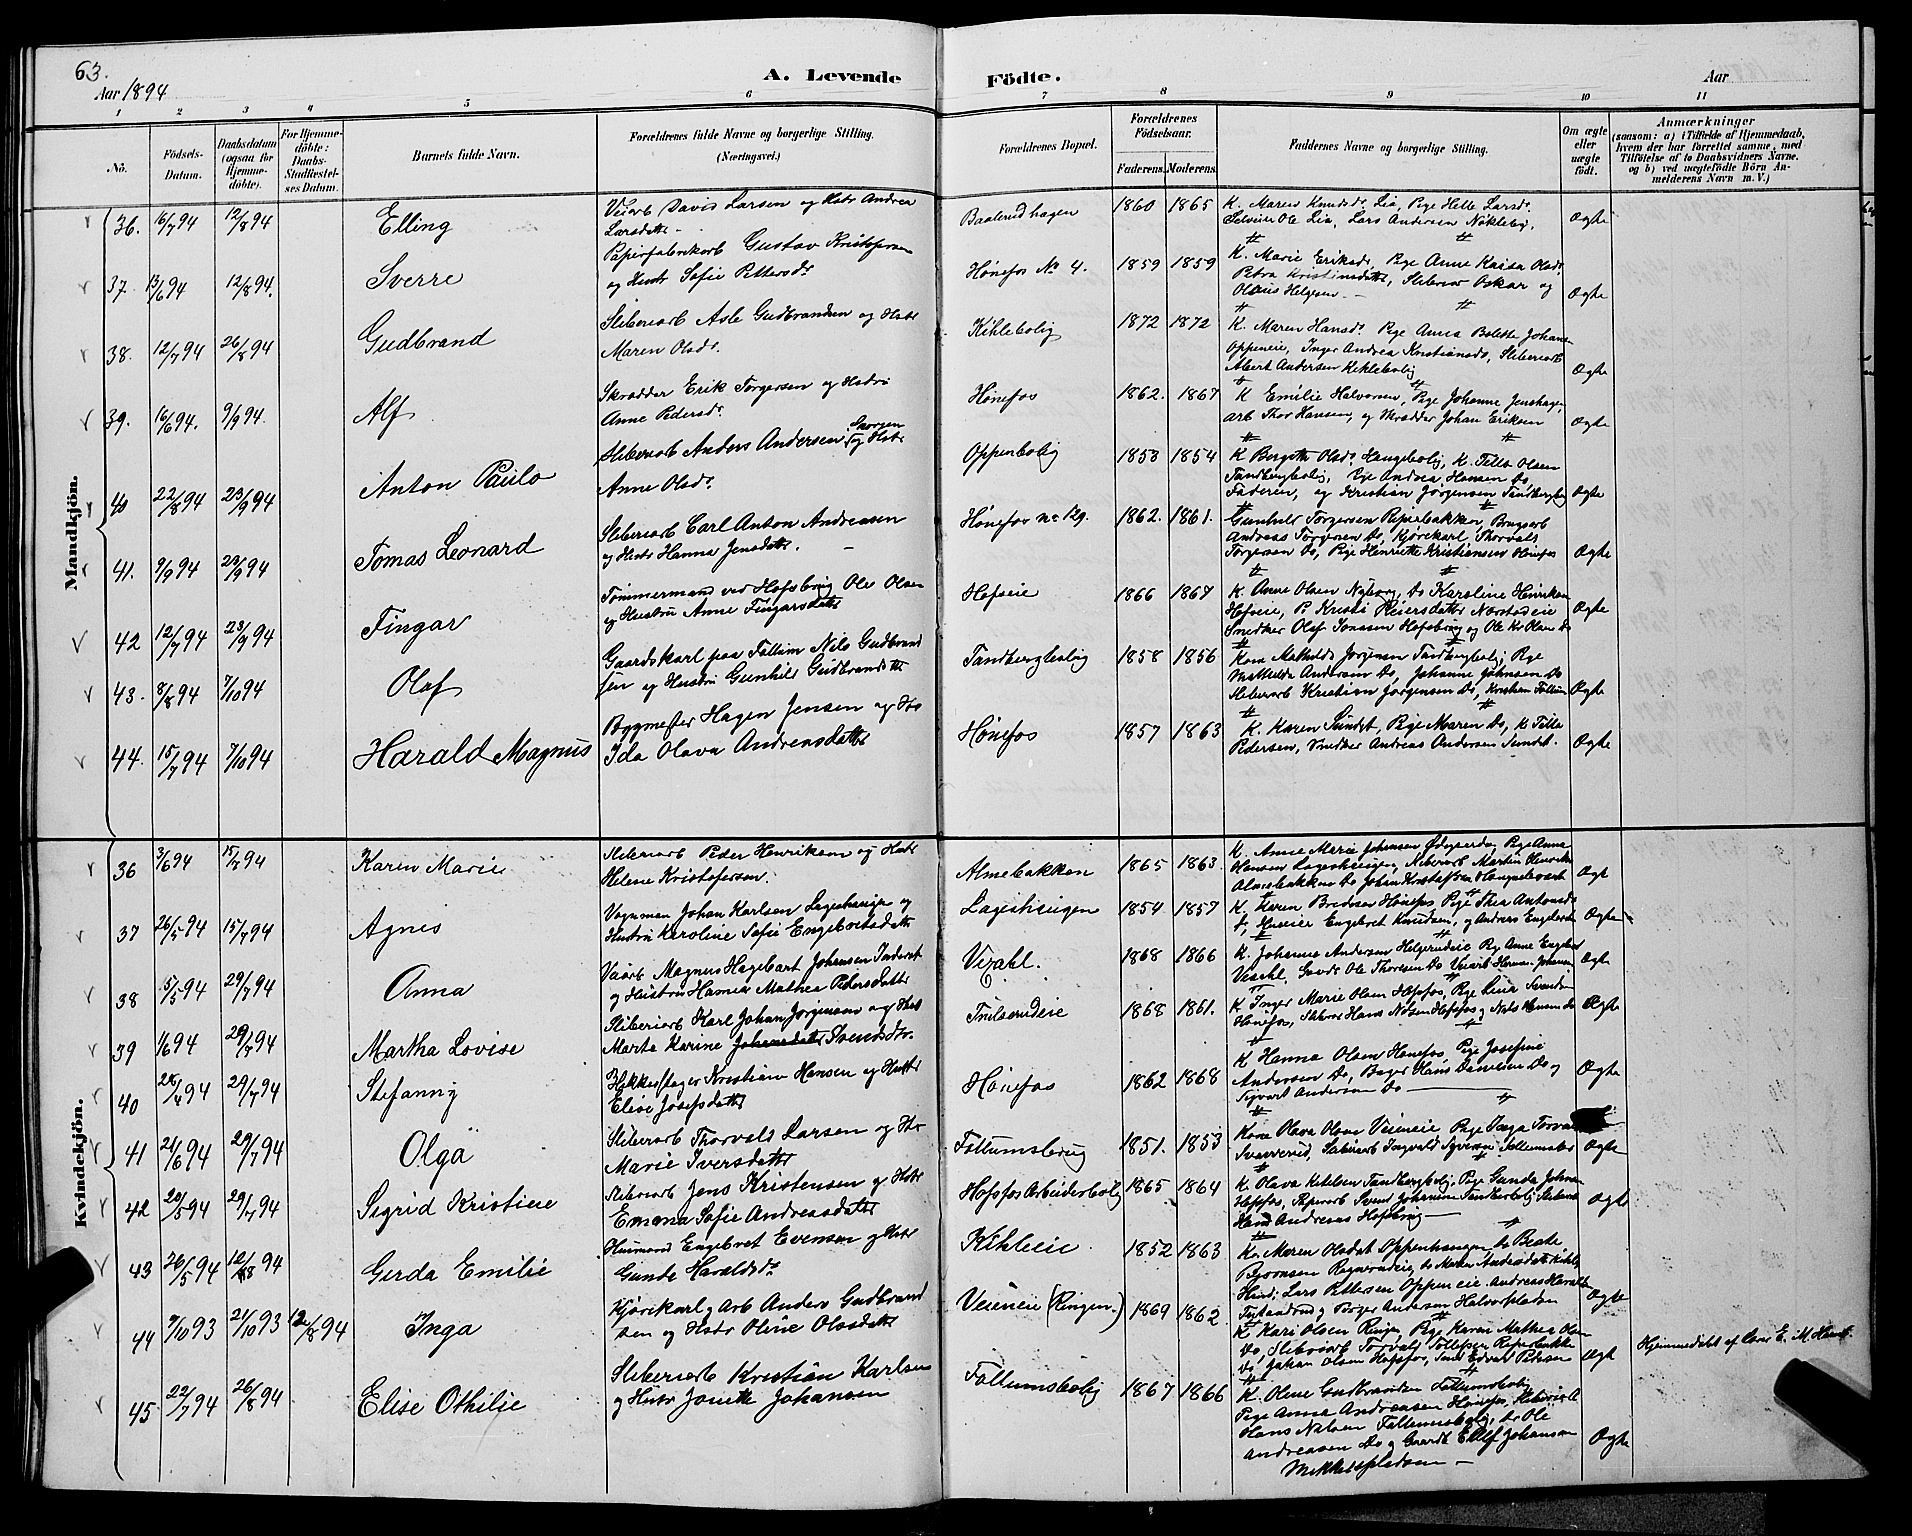 63.
Aar 1894
A. Levende Födte.
Aar
1 2 3 4 5 6 7 8 9 10 11
No.
Födsels-Datum.
Daabsdatum (ogsaa for Hjemme-döbte).
For Hjemme-döbte: Daabs-Stadfæstel-ses Datum.
Barnets fulde Navn.
Forældrenes fulde Navne og borgerlige Stilling. (Næringsvei.)
Forældrenes Bopæl.
Forældrenes Födselsaar.
Faderens. Moderens.
Faddernes Navne og borgerlige Stilling.
Om ægte eller uægte födt.
Anmærkninger (saasom: a) i Tilfælde af Hjemmedaab, hvem der har forrettet samme, med Tilföielse af to Daabsvidners Navne, og b) ved uægtefödte Börn An-melderens Navn m. V.)
Mandkjön.
36. 16/7 94 12/8 94 Elling
Veiarb David Larsen og Hstr Andrea
Larsdatter
Baalerudhagen 1860 1865
K. Maren Knudsd. Lia, Pige Helle Larsd.
Selveier Ole Lia, Lars Andersen Nökleby.
Ægte
37. 13/6 94 12/8 94. Sverre
Papirfabrikarb Gustav Kristofersen
og Hustr Sofie Pettersdr
Hönefos No 4. 1859 1859
K. Marie Eriksdr, Pige Anne Kaisa Olsdr
Petra Kristinedatter, Sliberiar Oskar og
Olaus Helgesen
Ægte
38. 12/7 94 26/8 94 Gudbrand
Sliberiarb Asle Gudbrandsen og Hstr
Maren Olsdr.
Kihlebolig 1872 1872
K. Maren Hansdr. Pige Anna Bolette Johans
Oppeneie, Inger Andrea Kristiansdr, Sliberiarb
Albert Andersen Kihlebolig
Ægte
39. 16/6 94. 9/9 94. Alf
Skrædder Erik Torgersen og Hstru
Anne Pedersdr.
Hönefos 1862. 1867
K Emilie Halvorsen, Pige Johanne Jenshagen
arb Thor Hansen, og Skrædder Johan Eriksen
Ægte
40 22/8 94 23/9 94 Anton Paulo
Sliberiarb Anders Andersen og Hstr
Anne Olsdr.
Oppenbolig 1853 1854
K Bergitte Olsdr. Haugebolig, K. Tilla Olsen
Tandbergbolig, Pige Andrea Hansen Do,
Faderen, og Kristian Jörgensen Tandbergbolig
Ægte
41. 9/9 94 23/9 94 Tomas Leonard
Sliberiarb Carl Anton Andreasen
og Hustr Hanna Jensdatter.
Hönefos No 129. 1862. 1861.
Gunhild Torgersen Riperbakken, Brugsarb
Andreas Torgersen Do, Kjörekarl Thorvald
Torgersen Do, Pige Henriette Kristiansen Hönefos
Ægte
42 12/7 94 23/9 94 Fingar
Tömmermand ved Hofsbrug Ole Olsen
og Hustru Anne Fingarsdatter
Hofseie 1866 1867
K. Anne Olsen Nyborg, Do Karoline Henriksen
Hofseie, P. Kristi Reiersdatter Nærstadeie
Snedker Olaf Jonassen Hofsbrug og Ole Kr Olsen Do
Ægte
43. 8/8 94 7/10 94 Olaf
Gaardskarl paa Follum Nils Gudbrand
sen og Hustru Gunhild Gudbrandsdatter
Tandbergbolig 1858 1856
Kone Mathilde Jörgensen Tandbergbolig, Pige
Mathilda Andersen Do, Johanne Johnsen Do
Sliberiarb Kristian Jörgensen Do, Kristian Follum
Ægte
44. 15/7 94 7/10 94 Harald Magnus
Bygmester Hagen Jensen og Hs
Ida Olava Andreasdatter
Hönefos 1857 1863
K. Karen Sundet, Pige Maren Do, K. Tilla
Pedersen, Snedker Andreas Andersen Sundet.
Ægte
Kvindekjön.
36 3/6 94 15/7 94 Karen Marie
Sliberiarb Peder Henriksen og Hustr
Helene Kristofersen.
Almebakken 1865 1863.
K. Anne Marie Johansen Ödegaarden, Pige Anne
Hansen Lageshaugen, Sliberiarb Martin Henriksen
Almebakken Do Johan Kristofersen
Ægte
37 26/5 94 15/7 94 Agnes
Vognman Johan Karlsen Lageshauge og
Hustru Karoline Sofie Engebretsdatter
Lageshaugen 1854 1857
K. Karen Bredesen Hönefos Pige Thea Antonsdr
Do, Huseier Engebret Knudsen, og Anders Engebretsen
Ægte
38 5/5 94 29/7 94 Anna
Vaarb Magnus Hagebart Johansen Inderst
og Hustru Hanna Mathea Pedersdatter
Vegahl. 1868 1866
K. Johanne Andersen Helgerudeie Pige Anne Engebret
Veahl, Gaardr Ole Thoresen Do Veiarb Herman Johansen
Ægte
39 1/6 94 29/7 94 Martha Lovise
Sliberiarb Karl Johan Jörgensen og Hust
Marte Karine Johansdatter Svendsdtr.
Trulserudeie 1868 1861.
K Inger Marie Olsen Hofsfos, Pige Lina Svendsen
Hönefos, Hans Nilsen Hofsfos og Nils Hansen Do
Ægte
40 28/4 94 29/7 94 Stefanny
Kristian Hansen og Hustr
Elise Josefsdatter
Hönefos 1862 1868
K Hanna Olsen Hönefos, Pige Josefine
Andersen Do, Bager Hans Danielsen Do og
Sigvart Andersen Do
Ægte
41 21/6 94 29/7 94 Olga
Sliberiarb Thorvald Larsen og Hstr
Marie Iversdatter
Follumsbrug 1851. 1853
Kone Olava Olsen Veieneie Pige Inga Torvald
Svarverud, Sliberiarb Ingvald Syversen Follumsbr
Ægte
42 20/5 94 29/7 94 Sigrid Kristiene
Sliberiarb Jens Kristensen og Hstr
Emma Sofie Andreasdatter
Hofsfos Arbeiderbolig 1865 1864
K. Olava Ketilsen Tandbergbolig, Pige Gunda Johnsen
Hofsfos, Papirarb Svend Johannesen Tandbergbolig
Hans Andreasen Hofsbrug
Ægte
43 26/5 94 12/8 94 Gerda Emilie
Husmand Engebret Evensen og Hstr
Gunda Haraldsdr
Kihleeie 1852 1863
K. Maren Olsdat Oppenhaugen, Do Beate
Bjørnsen Do Maren Andreasdatter Kihle,
Lars Pettersen Oppeneie. Andreas Harald
og Torger Andersen Halvorspladsen
Ægte
44 9/10 93 21/10 93 12/8 94 Inga
Kjörekarl og Arb Anders Gudbrand
sen og Hstr Oline Olsdatter
Veieneie (Ringen.) 1869 1862
K. Kari Olsen Ringen, Pige Karen Mathea Olsen
Do, Sliberiarb Torvald Tollefsen Riperbakke
Do Johan Olsen Hofsfos, Edvard Petersen
Ægte
Hjemmedöbt af
45 22/7 94 26/8 94 Elise Othilie
Sliberiarb Kristian Karlsen
og Hustr Jonette Johansen
Follumsbolig 1867 1866
K. Oline Gudbrandsen Follumsbolig
Pige Anna Andreasen Hönefos, Sliberiarb
Hans Nilsen Follumsbolig, Do Ole
Andreasen Do og Gaardb Ellef Johansen
Mikkelspladsen
Ægte